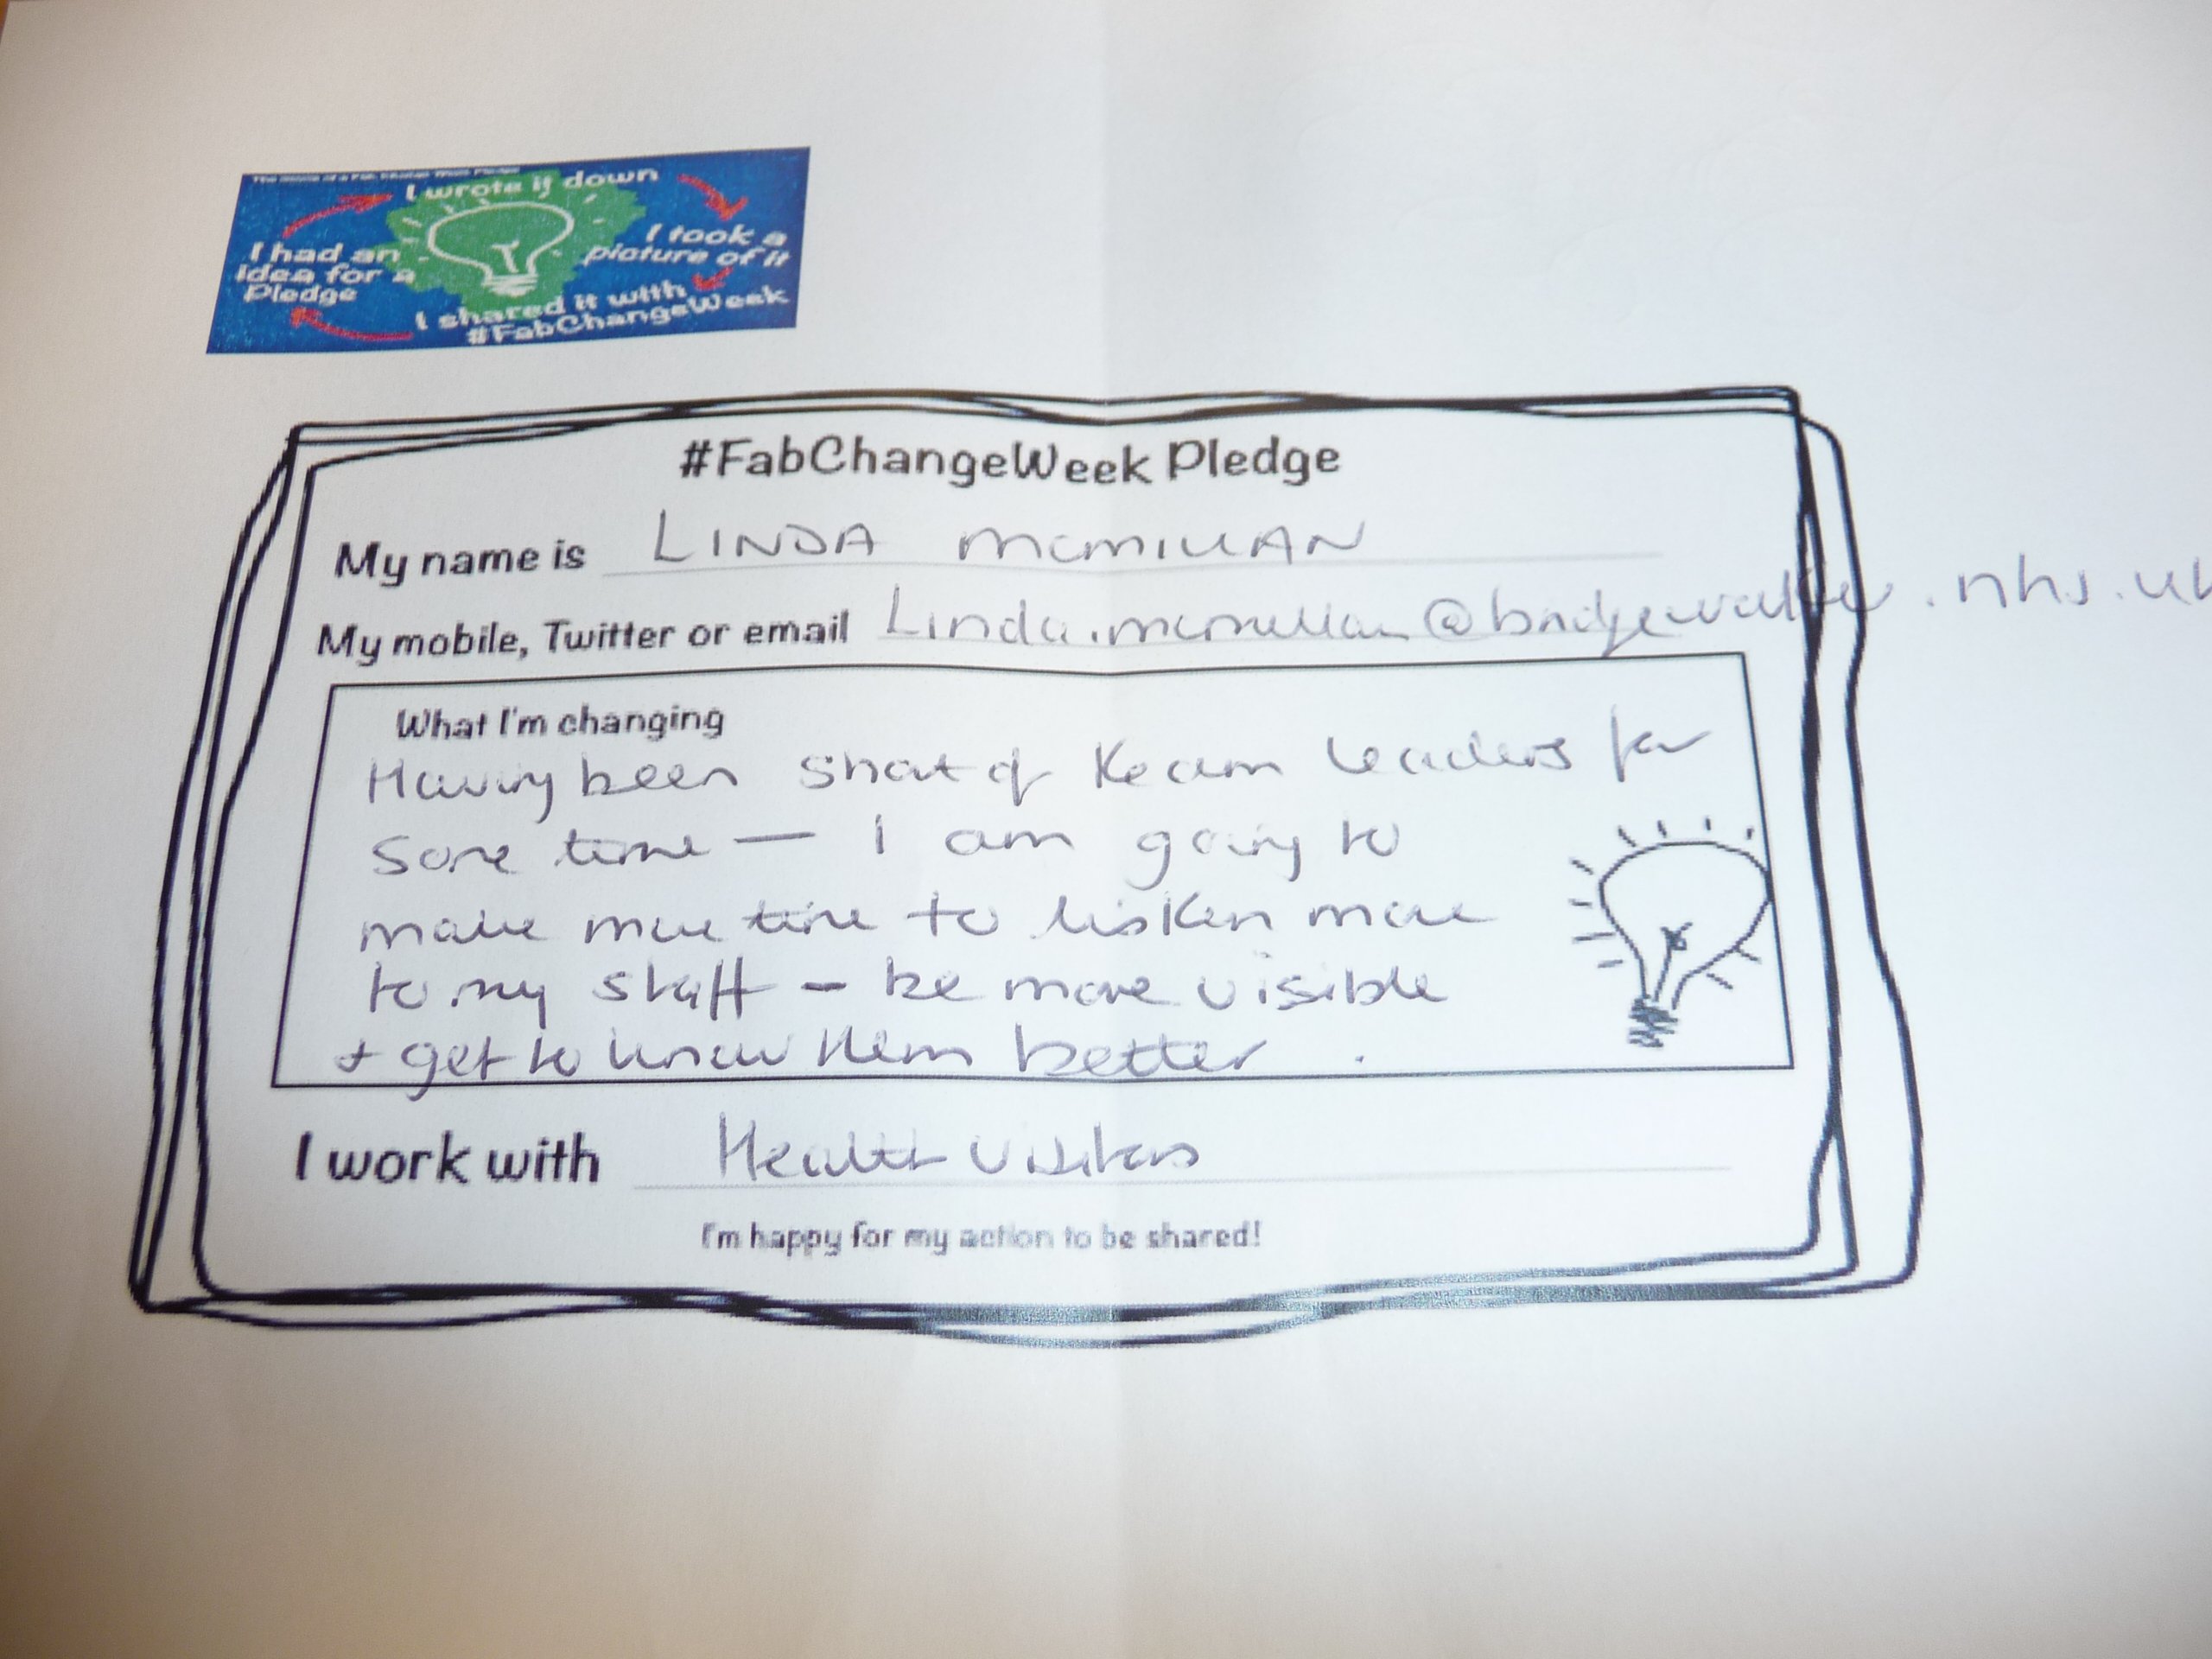 The Cycle of a Fab Change Week Pledge
I wrote it down
I took a
picture of it
I shared it with
#FabChangeWeek
I had an
idea for a
Pledge
#FabChangeWeek Pledge
My name is LINDA MCMILLAN
My mobile, Twitter or email Linda.mcmillan@bridgewater.nhs.uk
What I'm changing
Having been short of team leaders for
some time — I am going to
make more time to listen more
to my staff - be more visible
+ get to know them better.
I work with Health Visitors
I'm happy for my action to be shared!